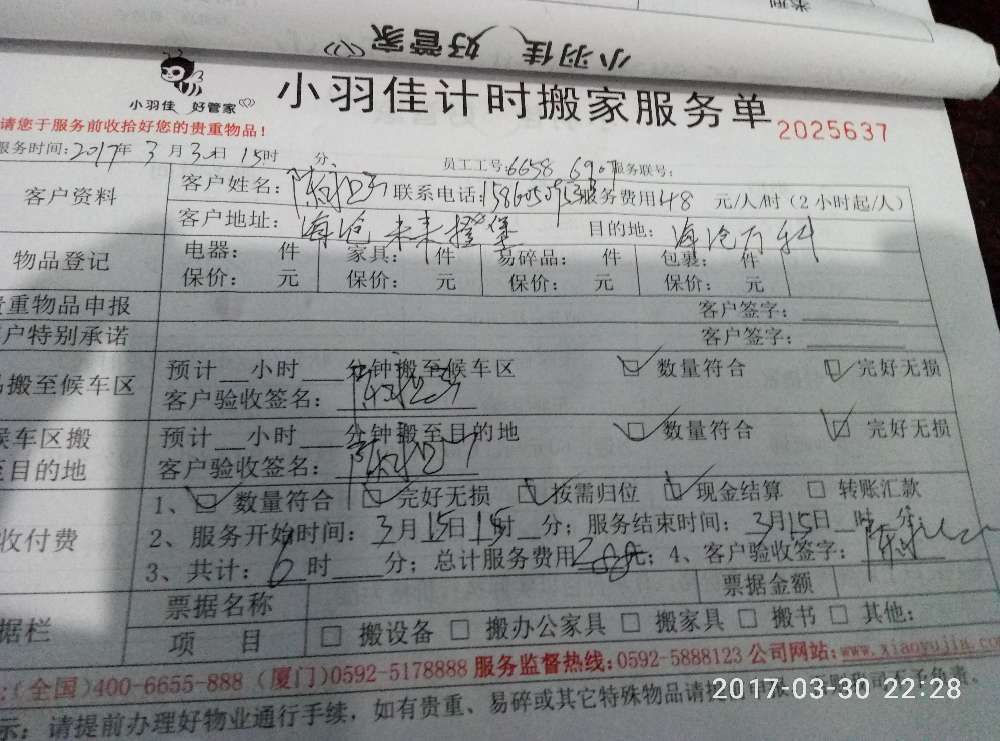 类型
小羽佳 好管家
小羽佳 好管家
小羽佳计时搬家服务单
2025637
请您于服务前收拾好您的贵重物品!
服务时间:2017年 3月30日 15时 分、
员工工号:6658 690 服务联号:
客户资料
客户姓名: 联系电话: 服务费用48 元/人/时(2小时起/人)
客户地址:海沧未来橙堡 目的地:海沧万科
物品登记
电器: 件 家具: 件 易碎品: 件 包裹: 件
保价: 元 保价: 元 保价: 元 保价: 元
贵重物品申报 客户签字:
客户特别承诺 客户签字:
搬至候车区
预计__小时___分钟搬至候车区 ☑ 数量符合 ☑ 完好无损
客户验收签名:
候车区搬至目的地
预计__小时___分钟搬至目的地 ☑ 数量符合 ☑ 完好无损
客户验收签名:
收付费
1、☑ 数量符合 ☑ 完好无损 ☑ 按需归位 ☑ 现金结算 □ 转账汇款
2、服务开始时间:3月15日15时__分;服务结束时间:3月15日__时__分;
3、共计:6时___分;总计服务费用288元;4、客户验收签字:
据栏
票据名称 票据金额
项 目 □ 搬设备 □ 搬办公家具 □ 搬家具 □ 搬书 □ 其他:
:(全国)400-6655-888 (厦门)0592-5178888 服务监督热线:0592-5888123 公司网站:www.xiaoyujia.com
示:请提前办理好物业通行手续,如有贵重、易碎或其它特殊物品请提
2017-03-30 22:28